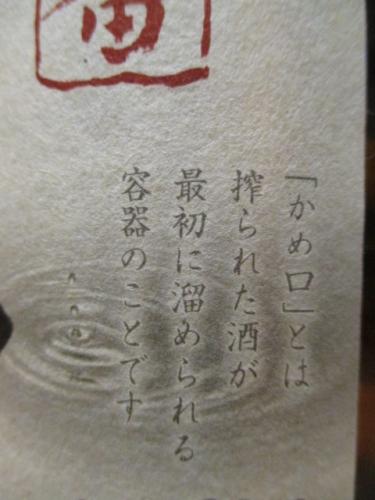 「かめ口」とは
搾られた酒が
最初に溜められる
容器のことです